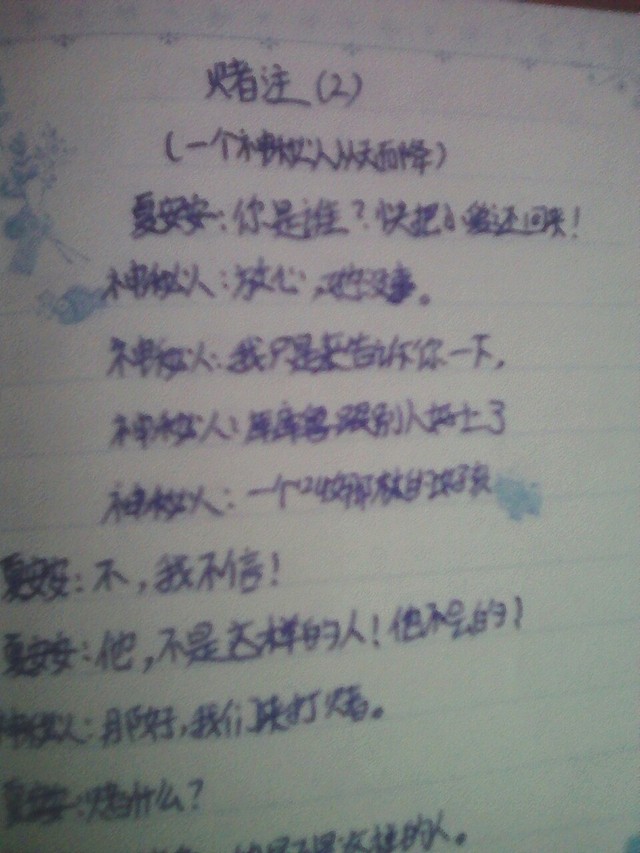 赌注(2)
(一个神秘人从天而降)
夏安安:你是谁?快把小爱还回来!
神秘人:放心,她没事。
神秘人:我只是来告诉你一下,
神秘人:库库鲁跟别人好上了
神秘人:一个叫 的女孩
夏安安:不,我不信!
夏安安:他,不是这样的人!他不会的!
神秘人:那好,我们来打赌。
夏安安:赌什么?
是不是这样的人。